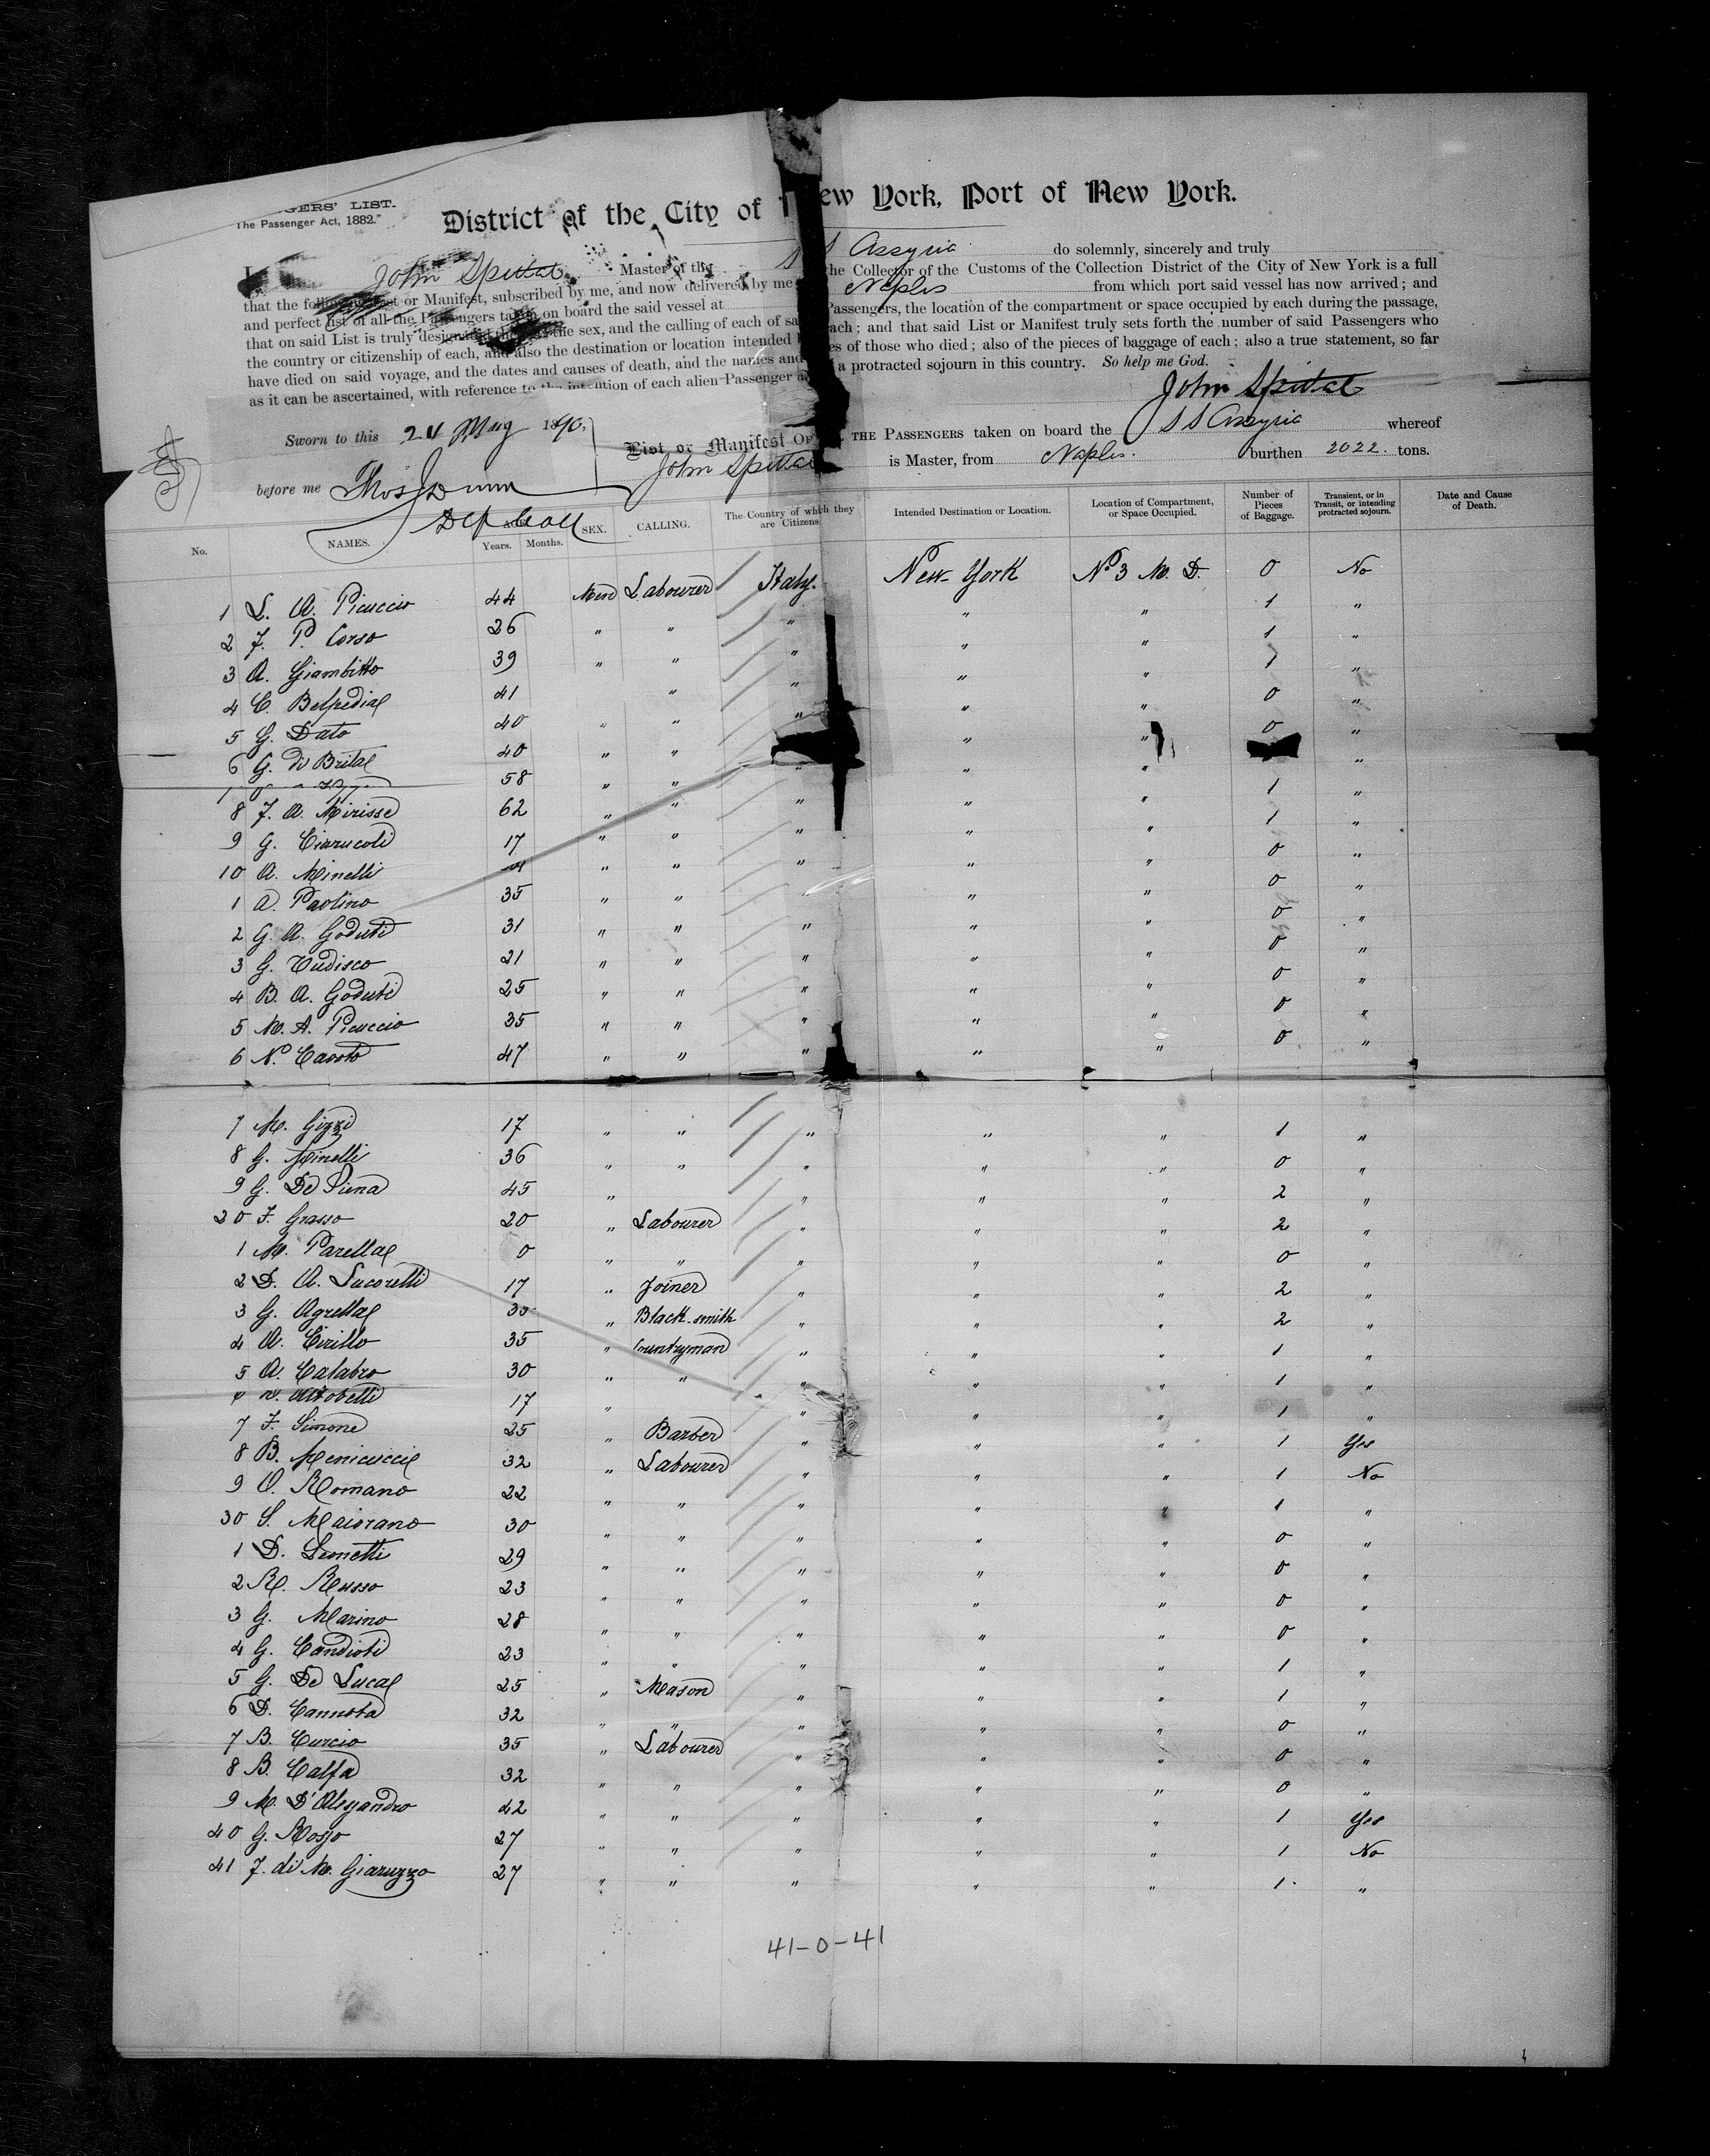 GERS' LIST.
The Passenger Act, 1882."
District of the City of New York, Port of New York.
I, John Spittal Master of the S S Assyria do solemnly, sincerely and truly
that the following List or Manifest, subscribed by me, and now delivered by me the Collector of the Customs of the Collection District of the City of New York is a full
and perfect list of all the Passengers taken on board the said vessel at Naples from which port said vessel has now arrived; and
that on said List is truly designated the sex, and the calling of each of sa Passengers, the location of the compartment or space occupied by each during the passage,
the country or citizenship of each, and also the destination or location intended each; and that said List or Manifest truly sets forth the number of said Passengers who
have died on said voyage, and the dates and causes of death, and the names and es of those who died; also of the pieces of baggage of each; also a true statement, so far
as it can be ascertained, with reference to the intention of each alien Passenger a a protracted sojourn in this country. So help me God.
John Spittal
Sworn to this 24 May 1890,
before me Thos Dunn
Dep Coll
List or Manifest OF THE PASSENGERS taken on board the S S Assyria whereof
John Spittal is Master, from Naples. burthen 2022 tons.
No. NAMES. AGE. Years. Months. SEX. CALLING. The Country of which they are Citizens Intended Destination or Location. Location of Compartment, or Space Occupied. Number of Pieces of Baggage. Transient, or in Transit, or intending protracted sojourn. Date and Cause of Death.
1 L. A. Picuccio 44 Men Labourer Italy. New-York No 3 M. D. 0 No
2 F. P. Corso 26 " " " " " 1 "
3 A. Giambitto 39 " " " " " 1 "
4 C. Belpedia 41 " " " " 1 "
5 G. Dato 40 " " " " " 0 "
6 G. di Brita 40 " " " " 0 "
58 " " " " " "
8 F. A. Mirisse 62 " " " " " 1 "
9 G. Ciarucoli 17 " " " " " 1 "
10 A. Minelli " " " " " 0 "
1 A. Paolino 35 " " " " " 0 "
2 G. A. Goduti 31 " " " " " 0 "
3 G. Tudisco 21 " " " " " 0 "
4 B. A. Goduti 25 " " " " " 0 "
5 M. A. Picuccio 35 " " " " " 0 "
6 N. Cavoto 47 " " " " " 0 "
7 M. Gizzi 17 " " " " " 1 "
8 G. Minelli 36 " " " " " 0 "
9 G. De Piena 45 " " " " 2 "
20 F. Grasso 20 " Labourer " " " 2 "
1 M. Parella 0 " " " " " 0 "
2 D. A. Lucorelli 17 " Joiner " " " 2 "
3 G. Agrella 35 " Black-smith " " " 2 "
4 A. Cirillo 35 " Countryman " " " 1 "
5 A. Calabro 30 " " " " " 1 "
Altobelli 17 " " " " 1 "
7 F. Simone 25 " Barber " " " 1 Yes
8 B. Menicucci 32 " Labourer " " " 1 No
9 O. Romano 22 " " " " " 1 "
30 S. Maiorano 30 " " " " " 0 "
1 D. Leonetti 29 " " " " " 0 "
2 R. Russo 23 " " " " " 0 "
3 G. Marino 28 " " " " " 0 "
4 G. Candioti 23 " " " " " 1 "
5 G. De Luca 25 " Mason " " " 1 "
6 D. Cannota 32 " " " " " 0 "
7 B. Curcio 35 " Labourer " " " 0 "
8 B. Calfa 32 " " " " " 0 "
9 M. D'Alessandro 42 " " " " " 1 Yes
40 G. Rosso 27 " " " " " 1 No
41 F. di M. Giaruzzo 27 " " " " " 1 "
41-0-41